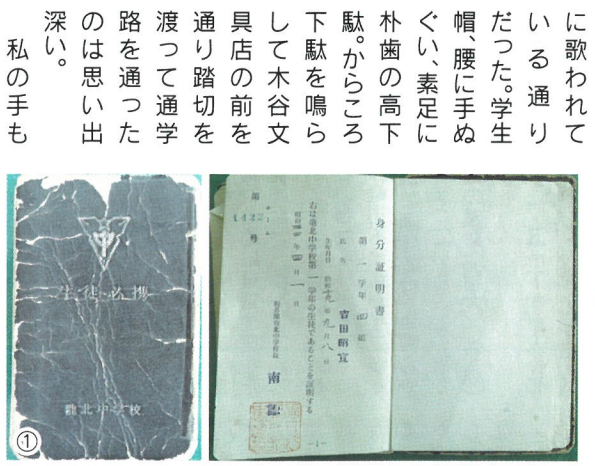 に歌われて
いる通り
だった。学生
帽、腰に手ぬ
ぐい、素足に
朴歯の高下
駄。からころ
下駄を鳴ら
して木谷文
具店の前を
通り踏切を
渡って通学
路を通った
のは思い出
深い。
私の手も
生徒必携
龍北中学校
①
身分証明書
第一学年四組
氏名
生年月日 昭和十九年九月八日
右は龍北中学校第一学年の生徒であることを証明する
年四月一日
第
1422
号
南